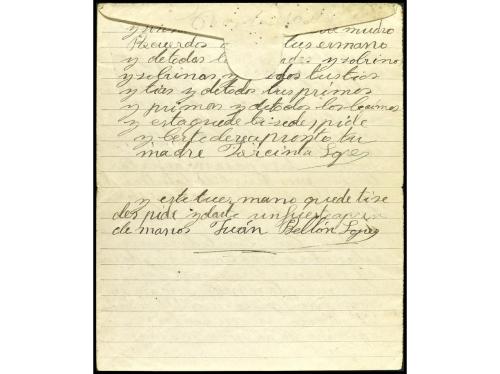 mudro
Recuerdos tus ermano
y detodas y sobrino
y sobrinas y tustios
y tias y detodos tus primos
y primas y detodos los becinos
y esta quede ti se des pide
y berte desea pronto tu
madre Jacinta Lopez
y este tu ermano que de ti se
des pide y dale un fuerte apreton
de manos Juán Bellón Lopez